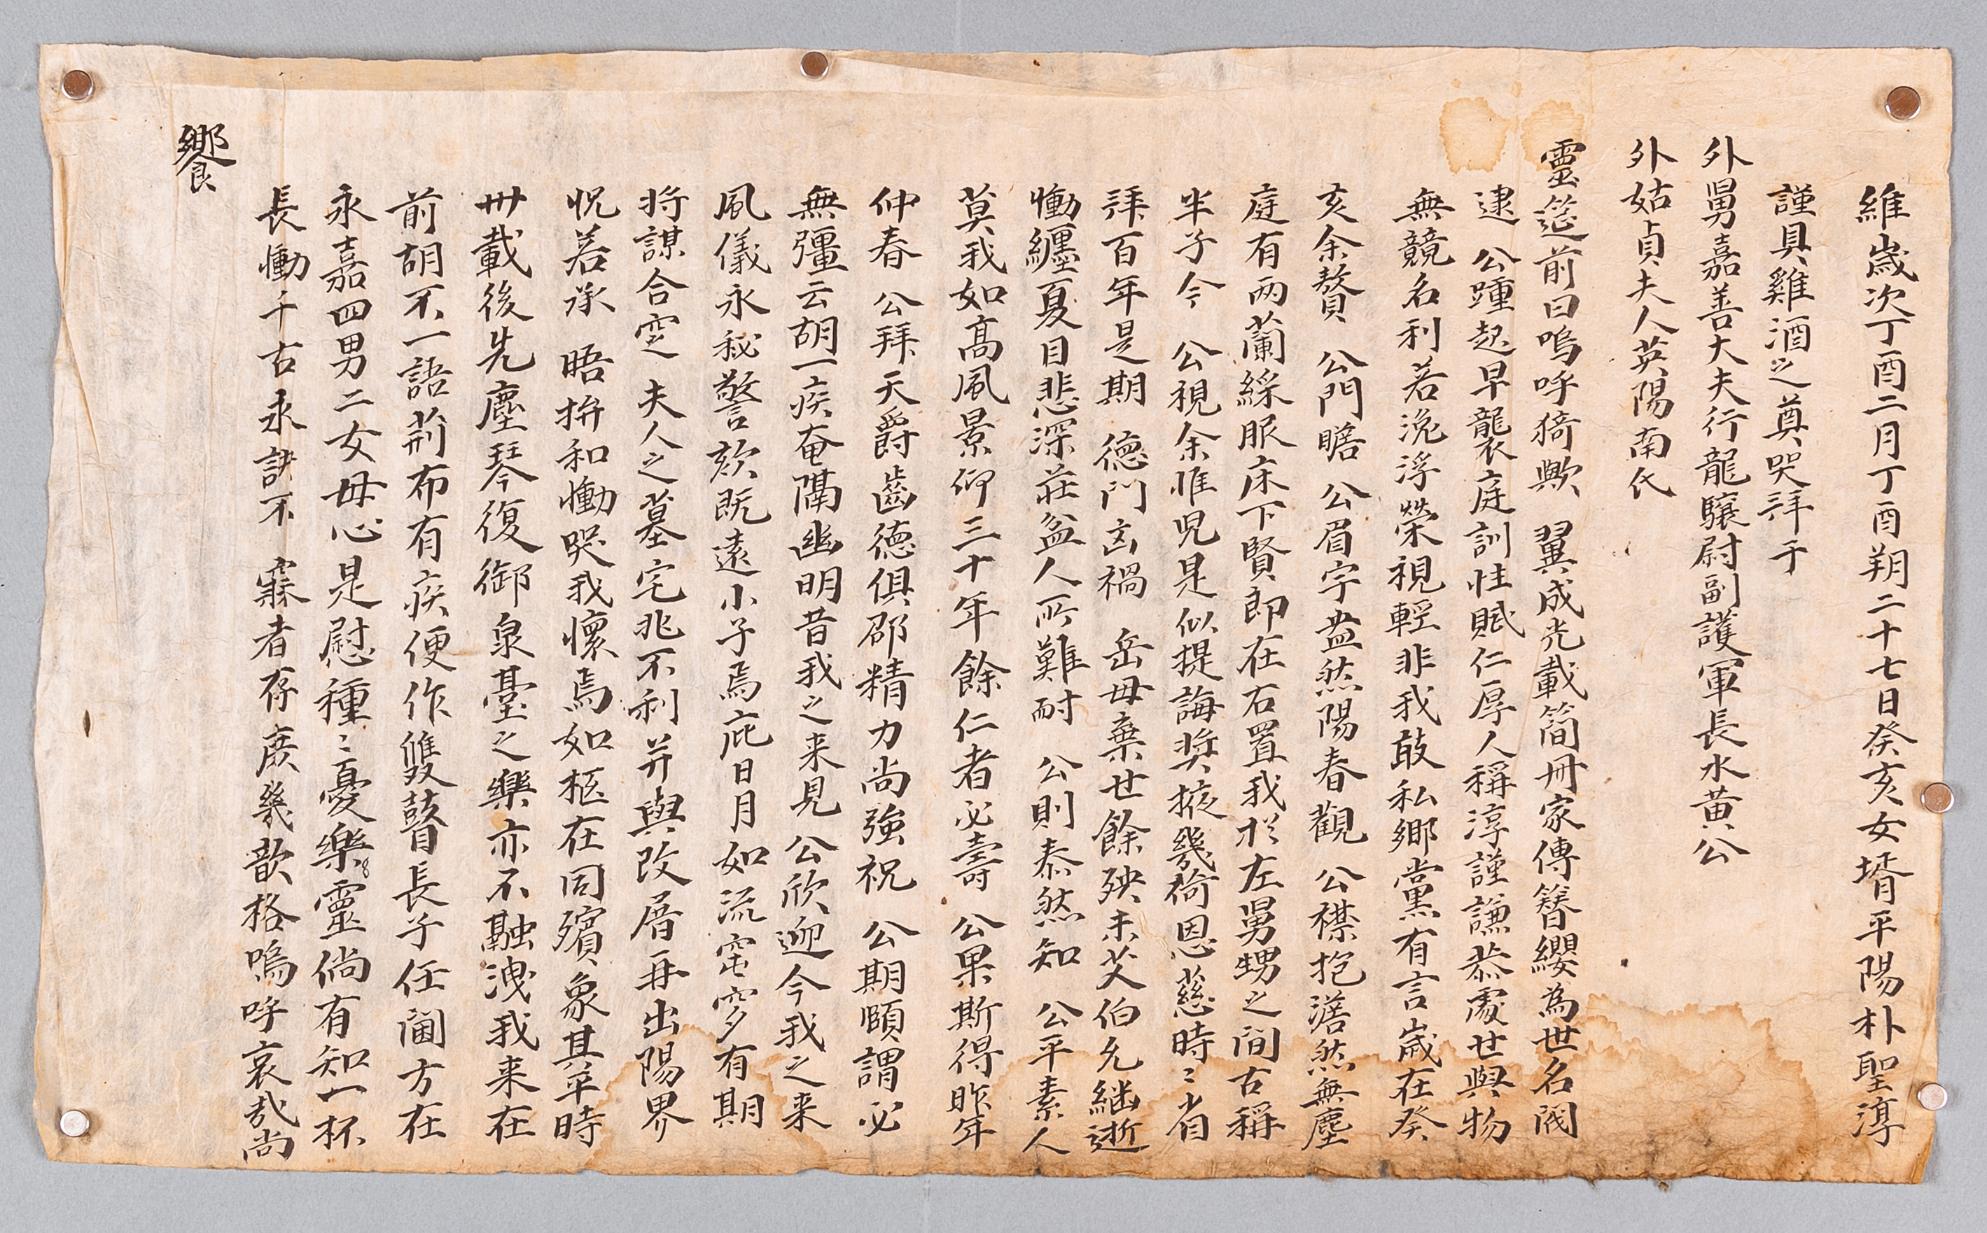 維歲次丁酉二月丁酉朔二十七日癸亥女壻平陽朴聖淳
謹具雞酒之奠哭拜于
外舅嘉善大夫行龍驤尉副護軍長水黃公
外姑貞夫人英陽南氏
靈筵前曰嗚呼猗歟 翼成光載簡冊家傳簪纓為世名閥
逮 公踵起早襲庭訓性賦仁厚人稱淳謹謙恭處世與物
無競名利若浼浮榮視輕非我敢私鄉黨有言歲在癸
亥余贅 公門瞻 公眉宇盎然陽春觀 公襟抱澹然無塵
庭有兩蘭綵服床下賢郎在右置我於左舅甥之間古稱
半子今 公視余惟兒是似提誨奬掖幾荷恩慈時〻省
拜百年是期 德門舀禍 岳母棄世餘殃未艾伯允繼逝
慟纏夏目悲深莊盆人所難耐 公則泰然知 公平素人
莫我如高風景仰三十年餘仁者必壽 公果斯得昨年
仲春 公拜天爵齒德俱卲精力尚強祝 公期頤謂必
無彊云胡一疾奄隔幽明昔我之来見公欣迎今我之来
風儀永秘警欬旣遠小子焉庇日月如流窀穸有期
將謀合窆 夫人之墓宅兆不利并與改厝再出陽界
怳若承 晤拚和慟哭我懷焉如柩在同殯象其平時
卅載後先塵琴復御泉臺之樂亦不融洩我来在
前胡不一語荊布有疾便作雙瞽長子任閫方在
永嘉四男二女母心是慰種〻憂樂靈尚有知一杯
長慟千古永訣不 寐者存庶幾歆格嗚呼哀哉尚
饗